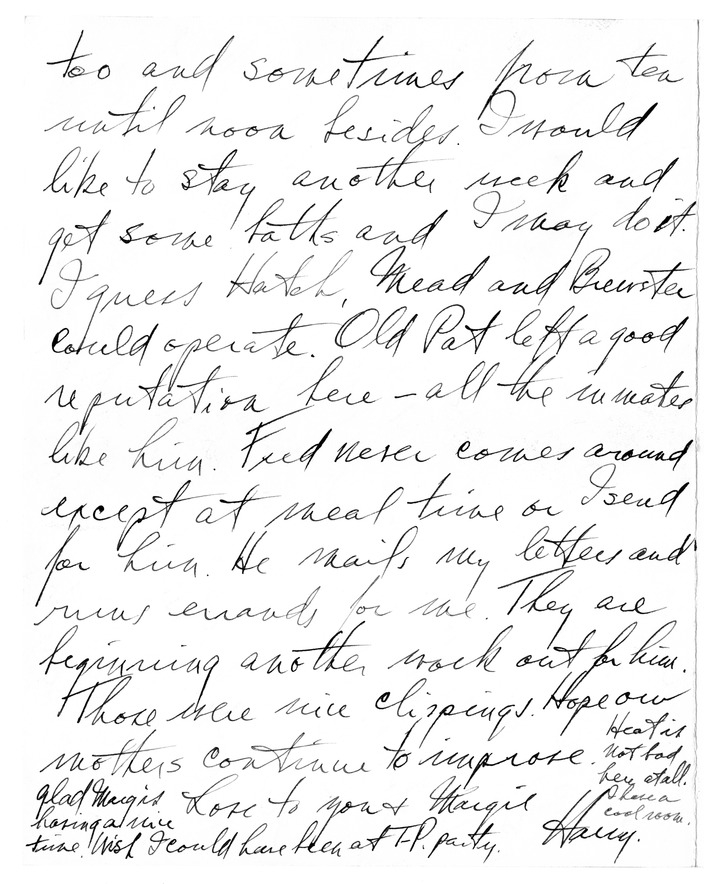 too and sometimes from ten
until noon besides. I would
like to stay another week and
get some baths and I may do it.
I guess Hatch, Mead and Brewster
could operate. Old Pat left a good
reputation here - all the inmates
like him. Fred never comes around
except at meal time or I send
for him. He mails my letters and
runs errands for me. They are
beginning another work out for him.
Those were nice clippings. Hope our
mothers continue to improve.
Heat is
not bad
here at all.
I have a
cool room.
Love to you & Margie
Harry.
glad Margie is
having a nice
time. Wish I could have been at T-P. party.